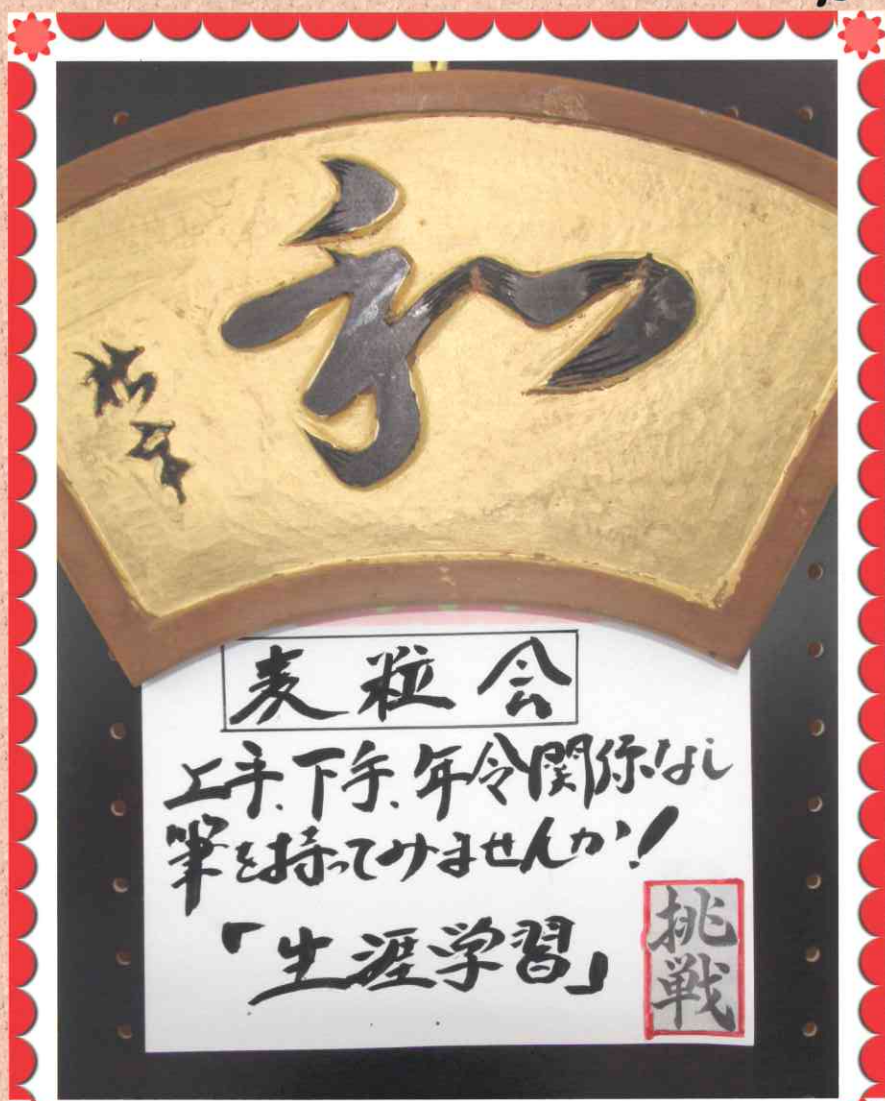 和
麦粒会
上手、下手、年令関係なし
筆を持ってみませんか!
「生涯学習」
挑戦